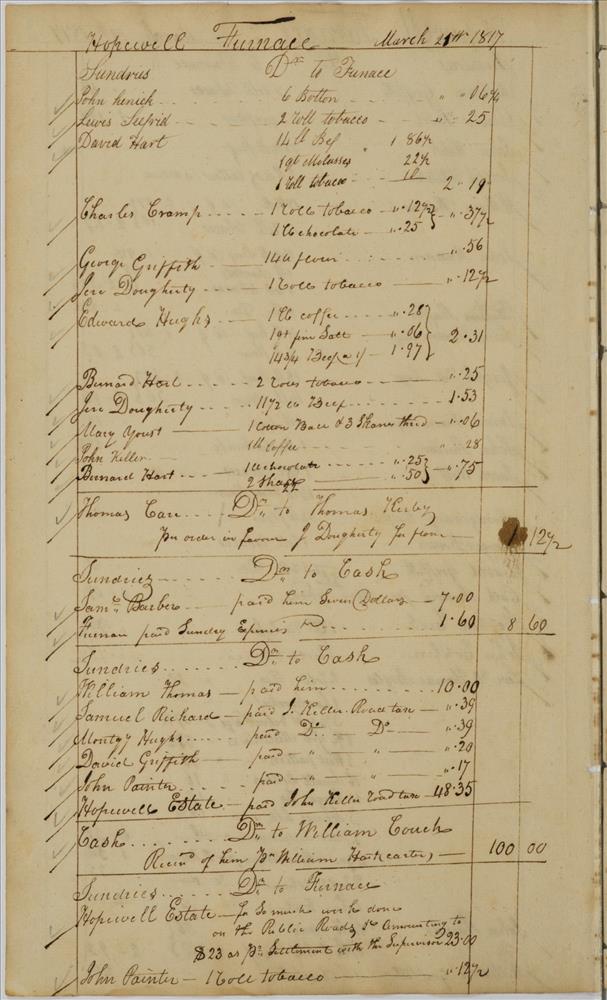 Hopewell Furnace March 21st 1817
Sundries Drs to Furnace
John 6 Botton " " 06¼
Lewis Seifrid 2 Roll tobacco " " 25
David Hart 14 lb Bef 1 86½
1 qt Molasses 22½
1 Roll tobacco 10 2 " 19
Charles Cramp 1 Rolls tobacco " . 12½
1 lb chocolate " . 25 " . 37½
George Griffith 14 lb flour " . 56
Jere Dougherty 1 Roll tobacco " . 12½
Edward Hughs 1 lb coffee " . 28
1 qt fine Salt " . 06 2 . 31
14 3/4 Beef a 1/ 1 . 97
Bernard Hart 2 Roles tobacco " . 25
Jere Dougherty 11½ lb Beef 1 . 53
Mary Youst 1 Cotton Ball & 3 Skanes thrid " . 06
John Keller 1 lb Coffee " . 28
Bernard Hart 1 lb chocolate " . 25
2 " . 50 " . 75
Thomas Carr Dr to Thomas Kirby
Per order in favour J Dougherty for 1 12½
Sundries Drs to Cash
Saml Barber paid him Seven Dollars 7.00
Furnace paid Sundry Expences 1.60 8 60
Sundries Drs to Cash
William Thomas paid him 10.00
Samuel Richard paid J. Keller Road tax " . 39
Montgy Hughs paid Do Do " . 39
David Griffith paid " " " . 20
John Painter paid " " " . 17
Hopewell Estate paid John Keller road tax 48.35
Cash Dr to William Couch
Recivd of him Pr William Hart (carter) 100 00
Sundries Drs to Furnace
Hopewell Estate for So much work done
on the Public Roads &c Amounting to
$23 as Pr Settlement with the Supervisor 23.00
John Painter 1 Roll tobacco " . 12½